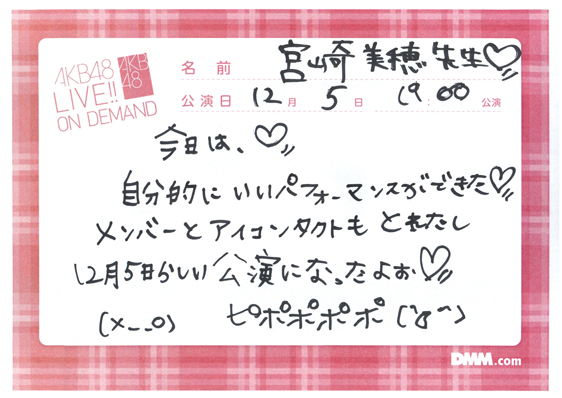 AKB48
LIVE!!
ON DEMAND
AKB
48
名 前 宮崎美穂先生♡
公演日 12月 5日 19:00 公演
今日は、♡
自分的にいいパフォーマンスができた♡
メンバーとアイコンタクトもとれたし
12月5日らしい公演になったよぉ♡
(×__○) ピポポポポ (^8^)
DMM.com